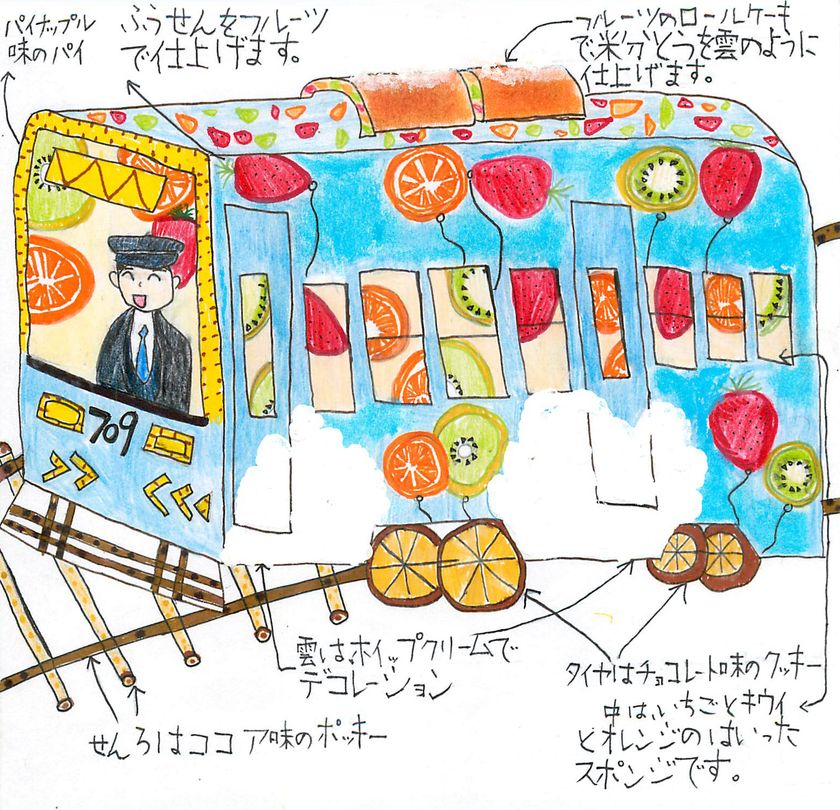 パイナップル
味のパイ
ふうせんをフルーツ
で仕上げます。
フルーツのロールケーキ
で粉分とうを雲のように
仕上げます。
709
雲はホイップクリームで
デコレーション
タイヤはチョコレート味のクッキー
中は、いちごとキウイ
とオレンジのはいった
スポンジです。
せんろはココア味のポッキー